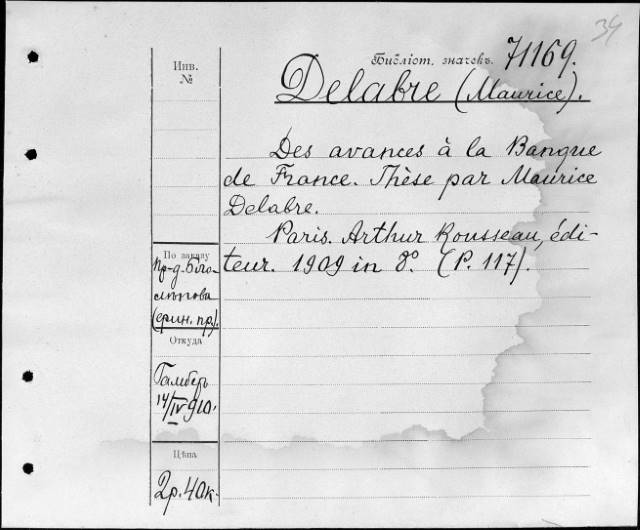 34
Библіот. значекъ. 71169.
Инв.
№
Delabre (Maurice).
Des avances à la Banque
de France. Thèse par Maurice
Delabre.
Paris. Arthur Rousseau, édi-
teur. 1909 in 8°. (P. 117).
По заказу
пр-д. Бого-
лѣпова
(фин. пр.).
Откуда
Гамберъ
14/IV 910.
Цѣна
2р. 40к.